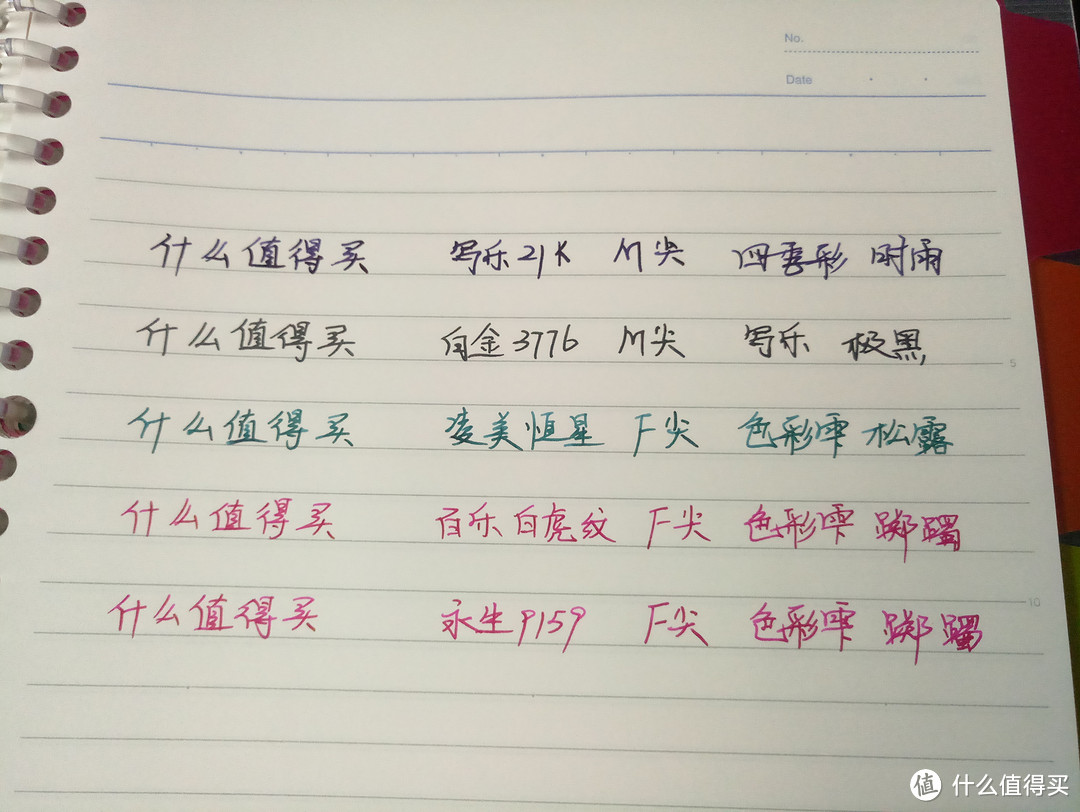 No.
Date
什么值得买 写乐21K M尖 四季彩 时雨
什么值得买 白金3776 M尖 写乐 极黑
5
什么值得买 凌美恒星 F尖 色彩雫 松露
什么值得买 百乐白虎纹 F尖 色彩雫 踯躅
10
什么值得买 永生9159 F尖 色彩雫 踯躅
值 什么值得买